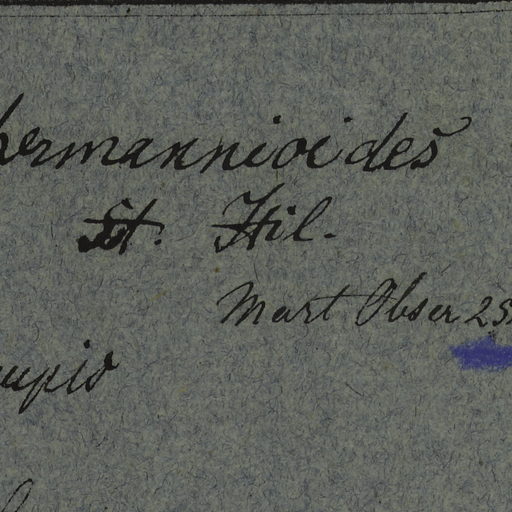 hermannioides
St. Hil.
Mart Obser 25